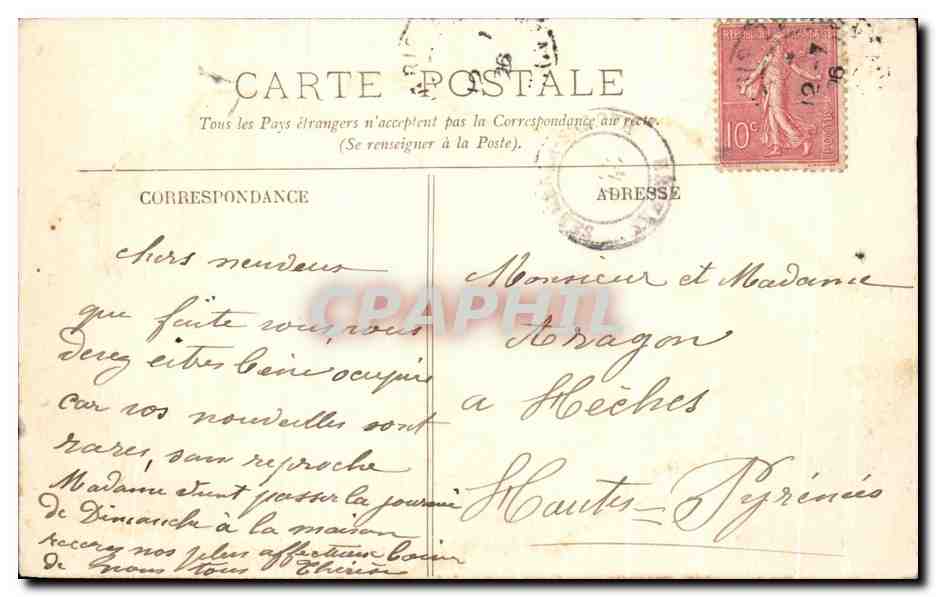 CARTE POSTALE
Tous les Pays étrangers n'acceptent pas la Correspondance au recto.
(Se renseigner à la Poste).
CORRESPONDANCE
chers neudeus
que faite vous, vous
devez êtres bèni ocupée
car vos nouvelles sont
rares, sans reproche
Madame vient passer la journée
de Dimanche à la maison
recevez nos plus affectueux
de nous tous Thérèse
ADRESSE
Monsieur et Madame
Aragon
a Hèches
Hautes=Pyrénées
10c
CPAPHIL